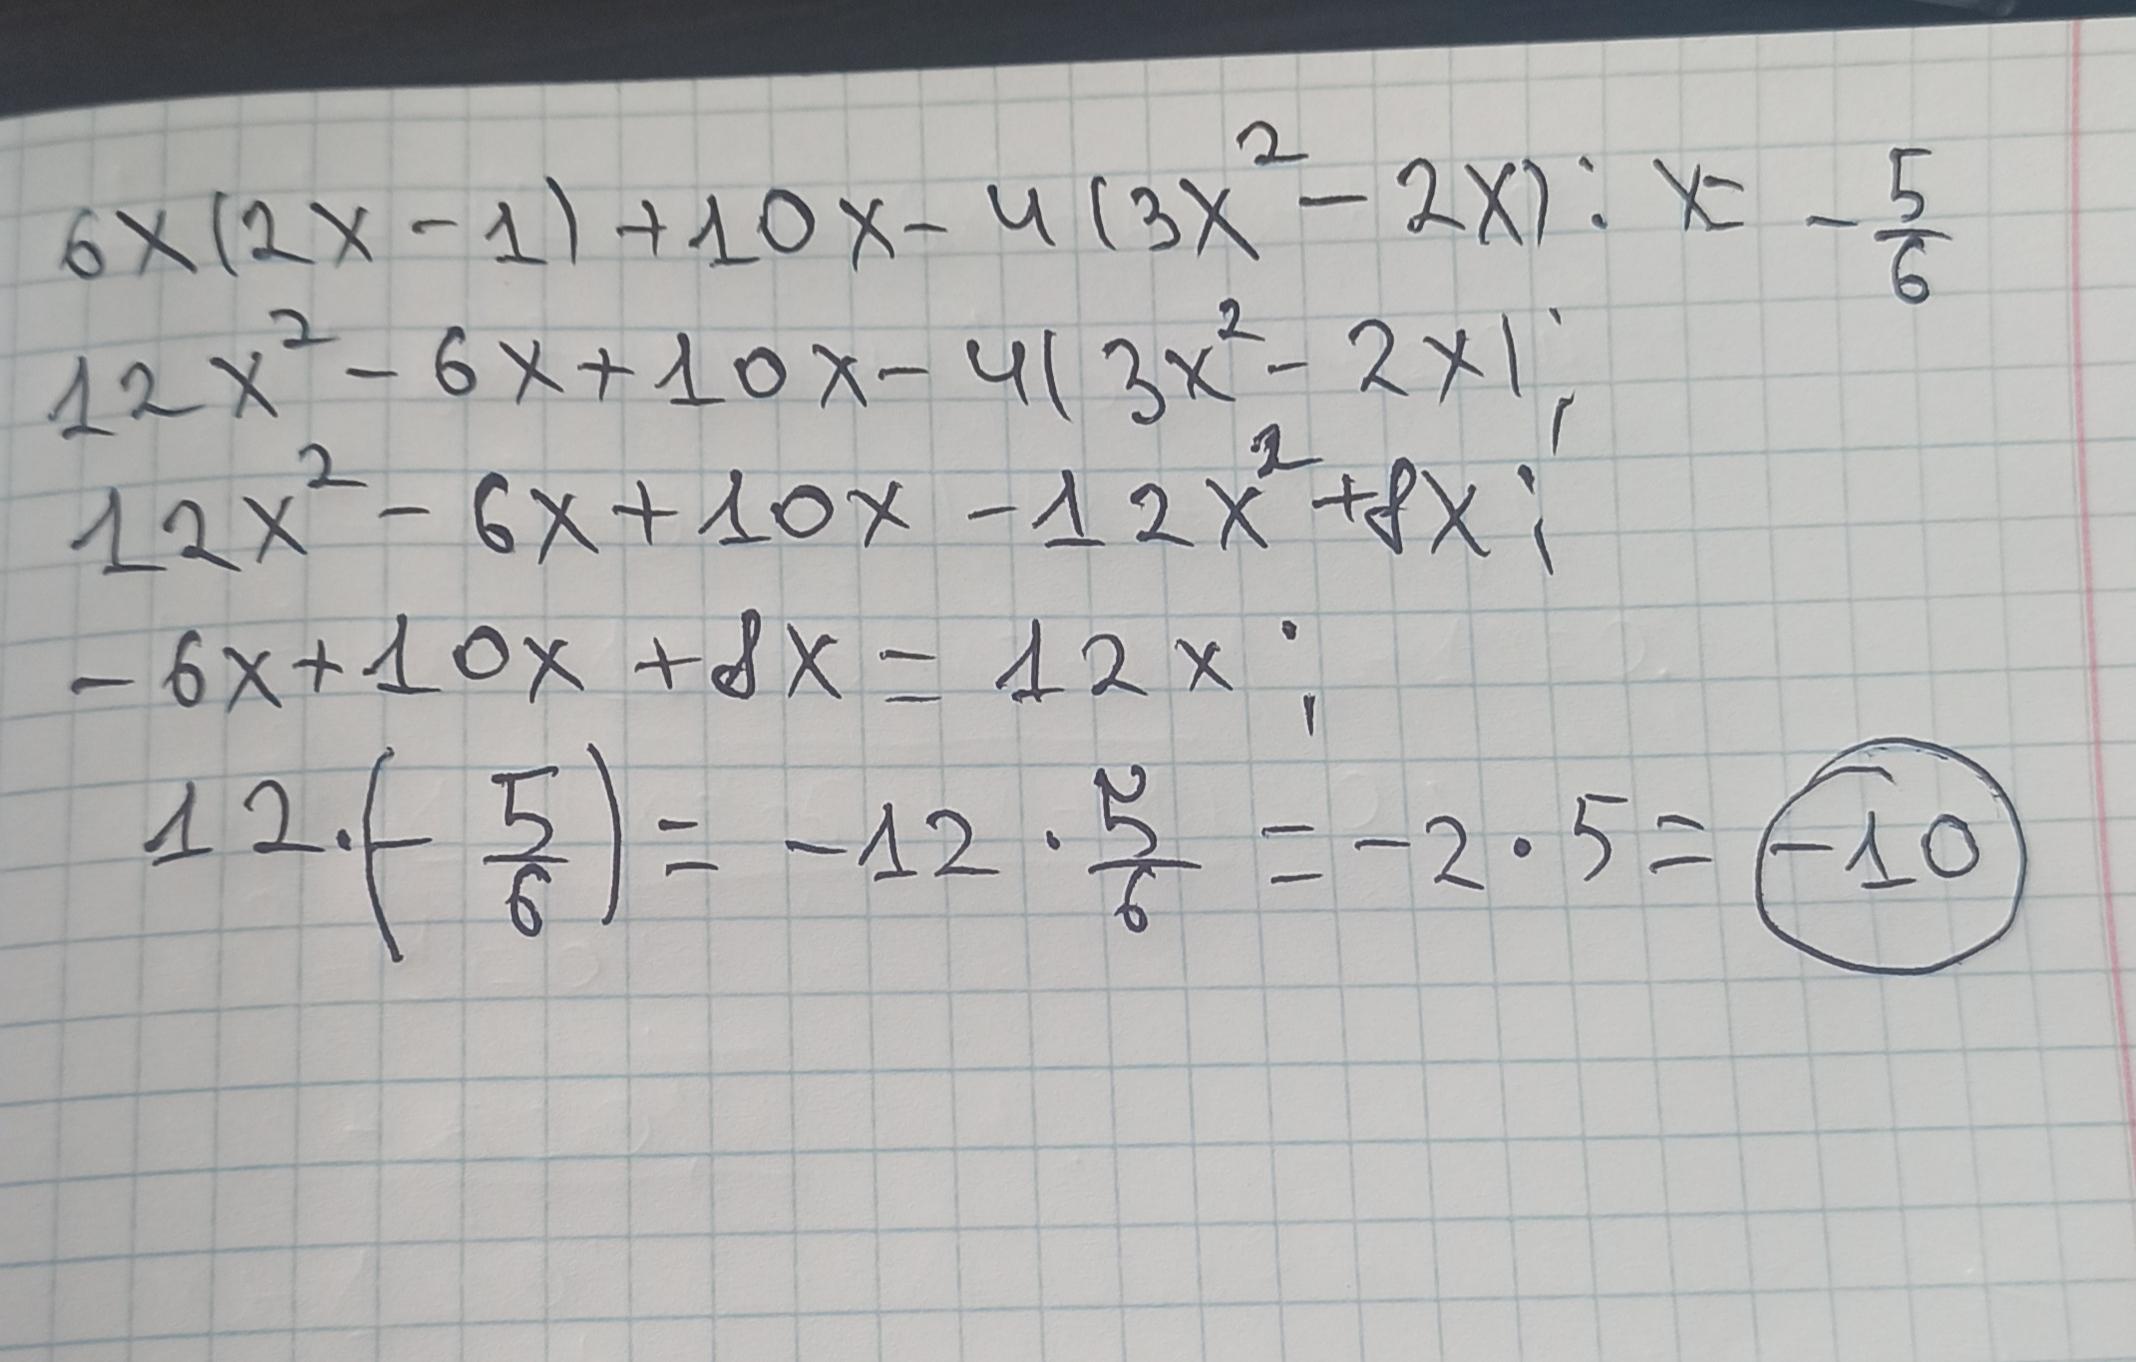 6x(2x-1)+10x-4(3x²-2x): x= -5/6
12x²-6x+10x-4(3x²-2x);
12x²-6x+10x-12x²+8x;
-6x+10x+8x=12x;
12·(-5/6)=-12·5/6=-2·5=-10